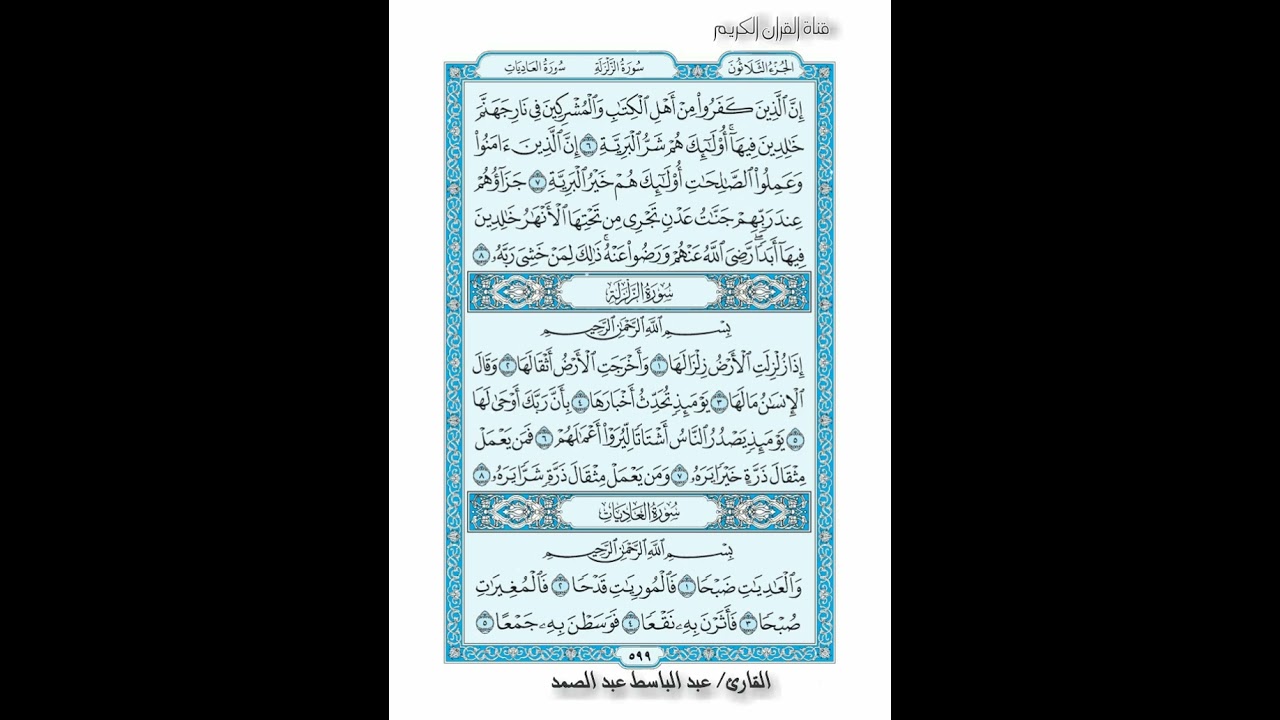 قناة القران الكريم
الجزء الثلاثون سورة الزلزلة سورة العاديات
إِنَّ ٱلَّذِينَ كَفَرُوا۟ مِنْ أَهْلِ ٱلْكِتَٰبِ وَٱلْمُشْرِكِينَ فِى نَارِ جَهَنَّمَ
خَٰلِدِينَ فِيهَآ ۚ أُو۟لَٰٓئِكَ هُمْ شَرُّ ٱلْبَرِيَّةِ ٦ إِنَّ ٱلَّذِينَ ءَامَنُوا۟
وَعَمِلُوا۟ ٱلصَّٰلِحَٰتِ أُو۟لَٰٓئِكَ هُمْ خَيْرُ ٱلْبَرِيَّةِ ٧ جَزَآؤُهُمْ
عِندَ رَبِّهِمْ جَنَّٰتُ عَدْنٍ تَجْرِى مِن تَحْتِهَا ٱلْأَنْهَٰرُ خَٰلِدِينَ
فِيهَآ أَبَدًا ۖ رَّضِىَ ٱللَّهُ عَنْهُمْ وَرَضُوا۟ عَنْهُ ۚ ذَٰلِكَ لِمَنْ خَشِىَ رَبَّهُۥ ٨
سورة الزلزلة
بِسْمِ ٱللَّهِ ٱلرَّحْمَٰنِ ٱلرَّحِيمِ
إِذَا زُلْزِلَتِ ٱلْأَرْضُ زِلْزَالَهَا ١ وَأَخْرَجَتِ ٱلْأَرْضُ أَثْقَالَهَا ٢ وَقَالَ
ٱلْإِنسَٰنُ مَا لَهَا ٣ يَوْمَئِذٍ تُحَدِّثُ أَخْبَارَهَا ٤ بِأَنَّ رَبَّكَ أَوْحَىٰ لَهَا
٥ يَوْمَئِذٍ يَصْدُرُ ٱلنَّاسُ أَشْتَاتًا لِّيُرَوْا۟ أَعْمَٰلَهُمْ ٦ فَمَن يَعْمَلْ
مِثْقَالَ ذَرَّةٍ خَيْرًا يَرَهُۥ ٧ وَمَن يَعْمَلْ مِثْقَالَ ذَرَّةٍ شَرًّا يَرَهُۥ ٨
سورة العاديات
بِسْمِ ٱللَّهِ ٱلرَّحْمَٰنِ ٱلرَّحِيمِ
وَٱلْعَٰدِيَٰتِ ضَبْحًا ١ فَٱلْمُورِيَٰتِ قَدْحًا ٢ فَٱلْمُغِيرَٰتِ
صُبْحًا ٣ فَأَثَرْنَ بِهِۦ نَقْعًا ٤ فَوَسَطْنَ بِهِۦ جَمْعًا ٥
٥٩٩
القارئ/ عبد الباسط عبد الصمد